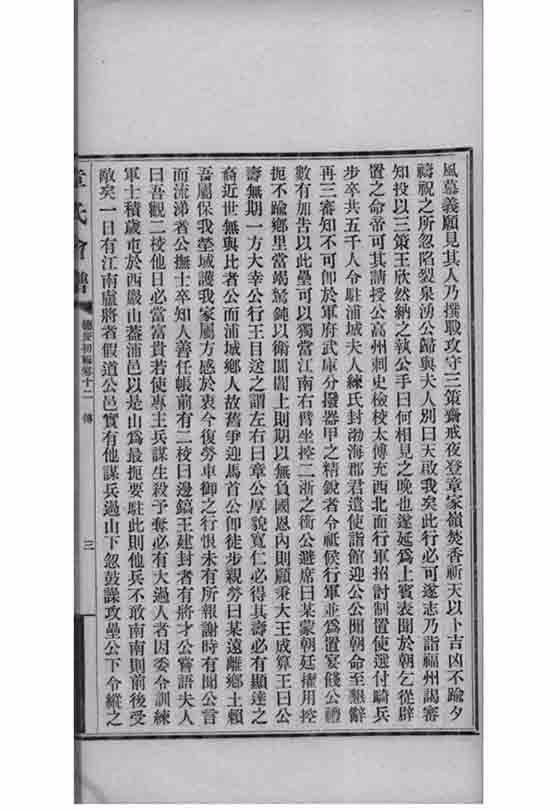 風慕義願見其人乃撰戰攻守三策齋戒夜登章家嶺焚香祈天以卜吉凶不踰夕
禱祝之所忽陷裂泉湧公歸與夫人別曰天啟我矣此行必可遂志乃詣福州謁審
知投以三策王欣然納之執公手曰何相見之晚也遂延爲上賓表聞於朝乞從辟
置之命帝可其請授公高州刺史檢校太傅充西北面行軍招討制置使選付騎兵
步卒共五千人令駐浦城夫人練氏封渤海郡君遣使詣館迎公公聞朝命至懇辭
再三審知不可卽於軍府武庫分撥器甲之精銳者令祗候行軍並爲置宴餞公禮
數有加告以此壘可以獨當江南右臂坐控二浙之衝公避席曰某蒙朝廷擢用控
扼不踰鄉里當竭駑鈍以衛閭閻上則期以無負國恩內則願秉大王成算王曰公
壽無期一方大幸公行王目送之謂左右曰章公厚貌寬仁必得其壽必有顯達之
裔近世無與比者公而浦城鄉人故舊爭迎馬首公卽徒步親勞曰某遠離鄉土賴
吾屬保我塋域護我家屬方感於衷今復勞車御之行恨未有所報謝時有聞公言
而流涕者公撫士卒知人善任帳前有二校曰邊鎬王建封者有將才公嘗語夫人
曰吾觀二校他日必當富貴若使專主兵謀生殺予奪必有大過人者因委令訓練
軍士積歲屯於西巖山葢浦邑以是山爲最扼要駐此則他兵不敢南南則前後受
敵矣一日有江南盧將者假道公邑實有他謀兵過山下忽鼓譟攻壘公下令縱之
章氏會譜 德慶初編卷十二 傳 三